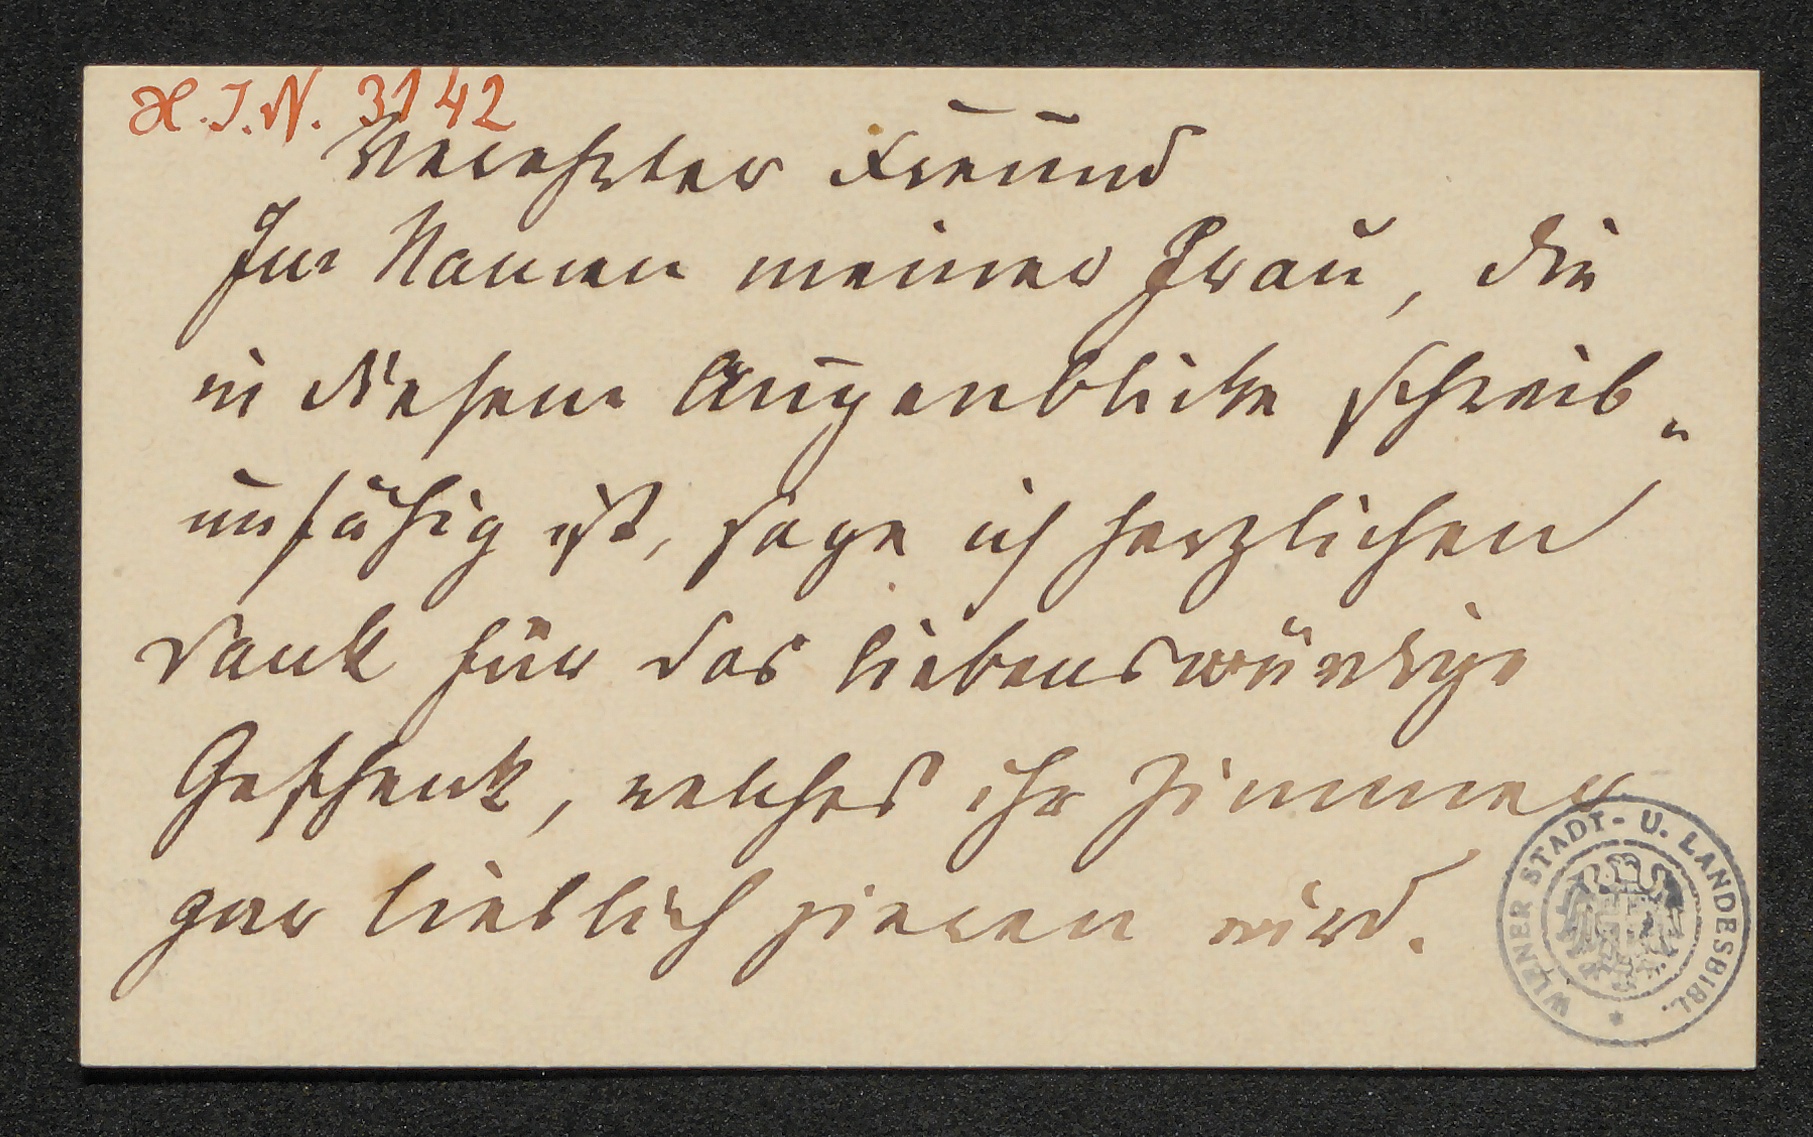 H.I.N. 3142
Verehrter Freund
Im Namen meiner Frau, die
in diesem Augenblicke schreib„
unfähig ist, sage ich herzlichen
Dank für das liebenswürdige
Geschenk, welches ihr Zimmer
gar lieblich zieren wird.
WIENER STADT- U. LANDESBIBL. *